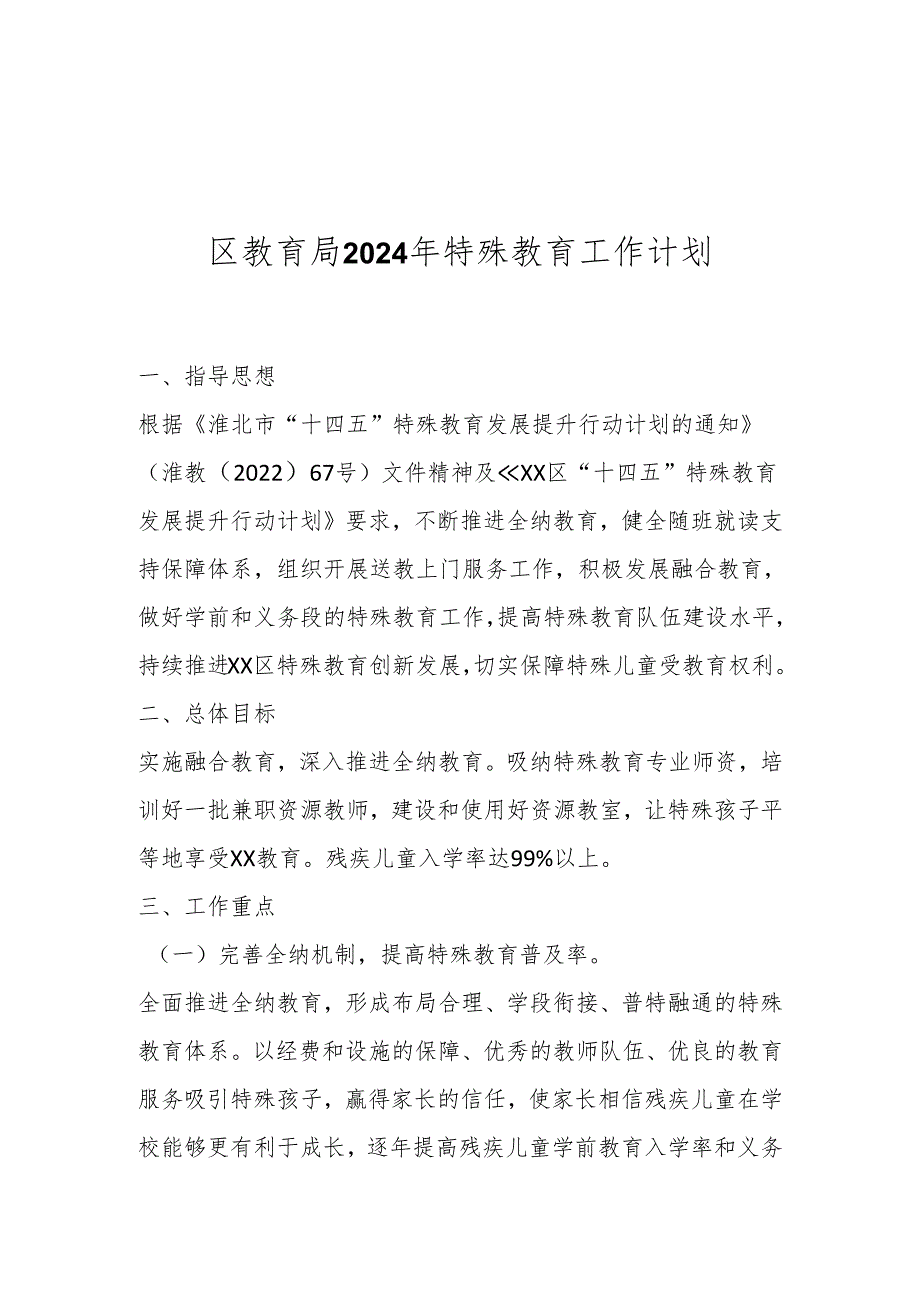 区教育局2024年特殊教育工作计划
一、指导思想
根据《淮北市“十四五”特殊教育发展提升行动计划的通知》
（淮教（2022）67号）文件精神及≪XX区“十四五”特殊教育
发展提升行动计划》要求，不断推进全纳教育，健全随班就读支
持保障体系，组织开展送教上门服务工作，积极发展融合教育，
做好学前和义务段的特殊教育工作,提高特殊教育队伍建设水平，
持续推进XX区特殊教育创新发展,切实保障特殊儿童受教育权利。
二、总体目标
实施融合教育，深入推进全纳教育。吸纳特殊教育专业师资，培
训好一批兼职资源教师，建设和使用好资源教室，让特殊孩子平
等地享受XX教育。残疾儿童入学率达99%以上。
三、工作重点
（一）完善全纳机制，提高特殊教育普及率。
全面推进全纳教育，形成布局合理、学段衔接、普特融通的特殊
教育体系。以经费和设施的保障、优秀的教师队伍、优良的教育
服务吸引特殊孩子，赢得家长的信任，使家长相信残疾儿童在学
校能够更有利于成长，逐年提高残疾儿童学前教育入学率和义务